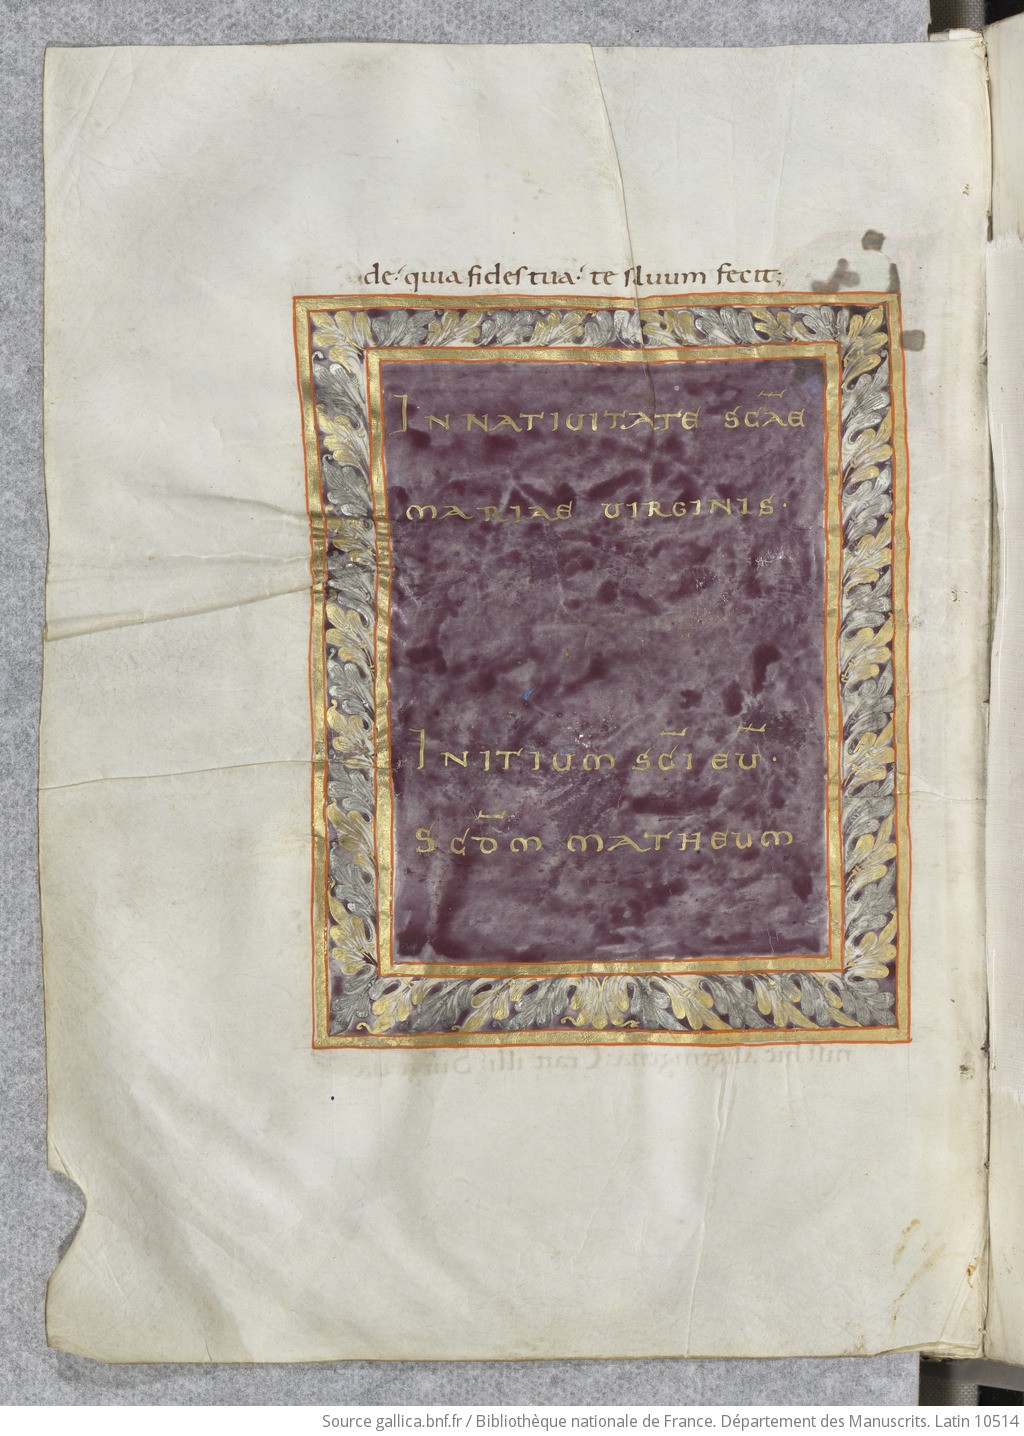 de·' quia fides tua·' te saluum fecit;
IN NATIUITATE SC̄AE
MARIAE UIRGINIS·
INITIUM SC̄I EŪ·
SCD̄M MATHEUM
Source gallica.bnf.fr / Bibliothèque nationale de France. Département des Manuscrits. Latin 10514